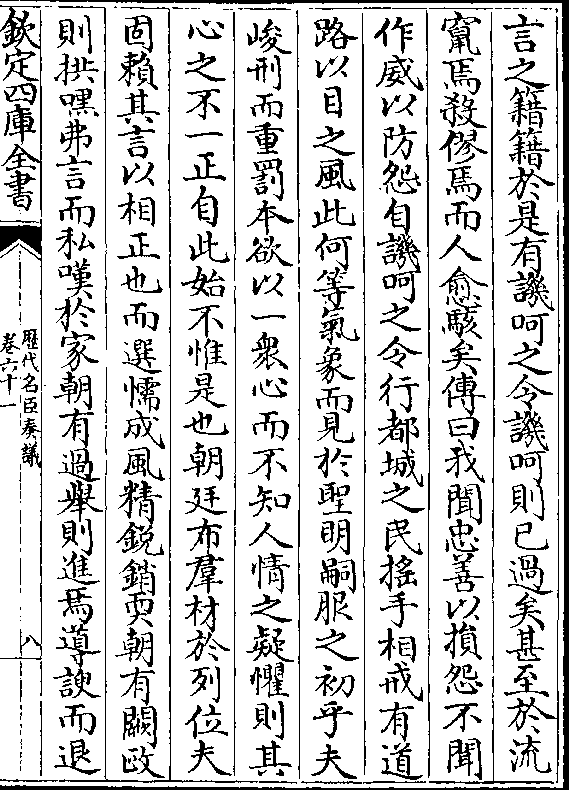 言之籍籍於是有譏呵之令譏呵則已過矣甚至於流
竄焉殺僇焉而人愈駭矣傳曰我聞忠善以損怨不聞
作威以防怨自譏呵之令行都城之民搖手相戒有道
路以目之風此何等氣象而見於聖明嗣服之初乎夫
峻刑而重罰本欲以一衆心而不知人情之疑懼則其
心之不一正自此始不惟是也朝廷布羣材於列位夫
固賴其言以相正也而選懦成風精銳銷耎朝有闕政
則拱嘿弗言而私嘆於家朝有過舉則進焉導諛而退
欽定四庫全書
歷代名臣奏議
卷六十一
八